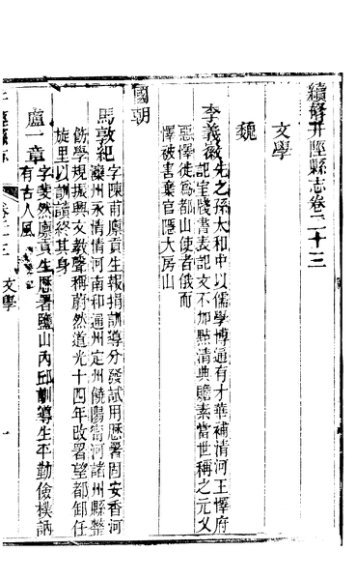 續修井陘縣志卷二十三
文學
魏
李義徽
先之孫太和中以儒學博通有才華補清河王懌府
記室牋書表記文不加點清典贍素當世稱之元乂
惡懌徒為都山使者俄而
懌被害棄官隱大房山
國朝
馬敦杞
字陳甫廩貢生報捐訓導分發試用歷署固安香河
灤州永清清河南和通州定州饒陽清河諸州縣整
飭學規振興文教聲稱蔚然道光十四年改署望都卸任
旋里以訓讀終其身
盧一章
字斐然廩貢生歷署鹽山內邱訓導生平勤儉樸訥
有古人風
卷二十三
文學
一